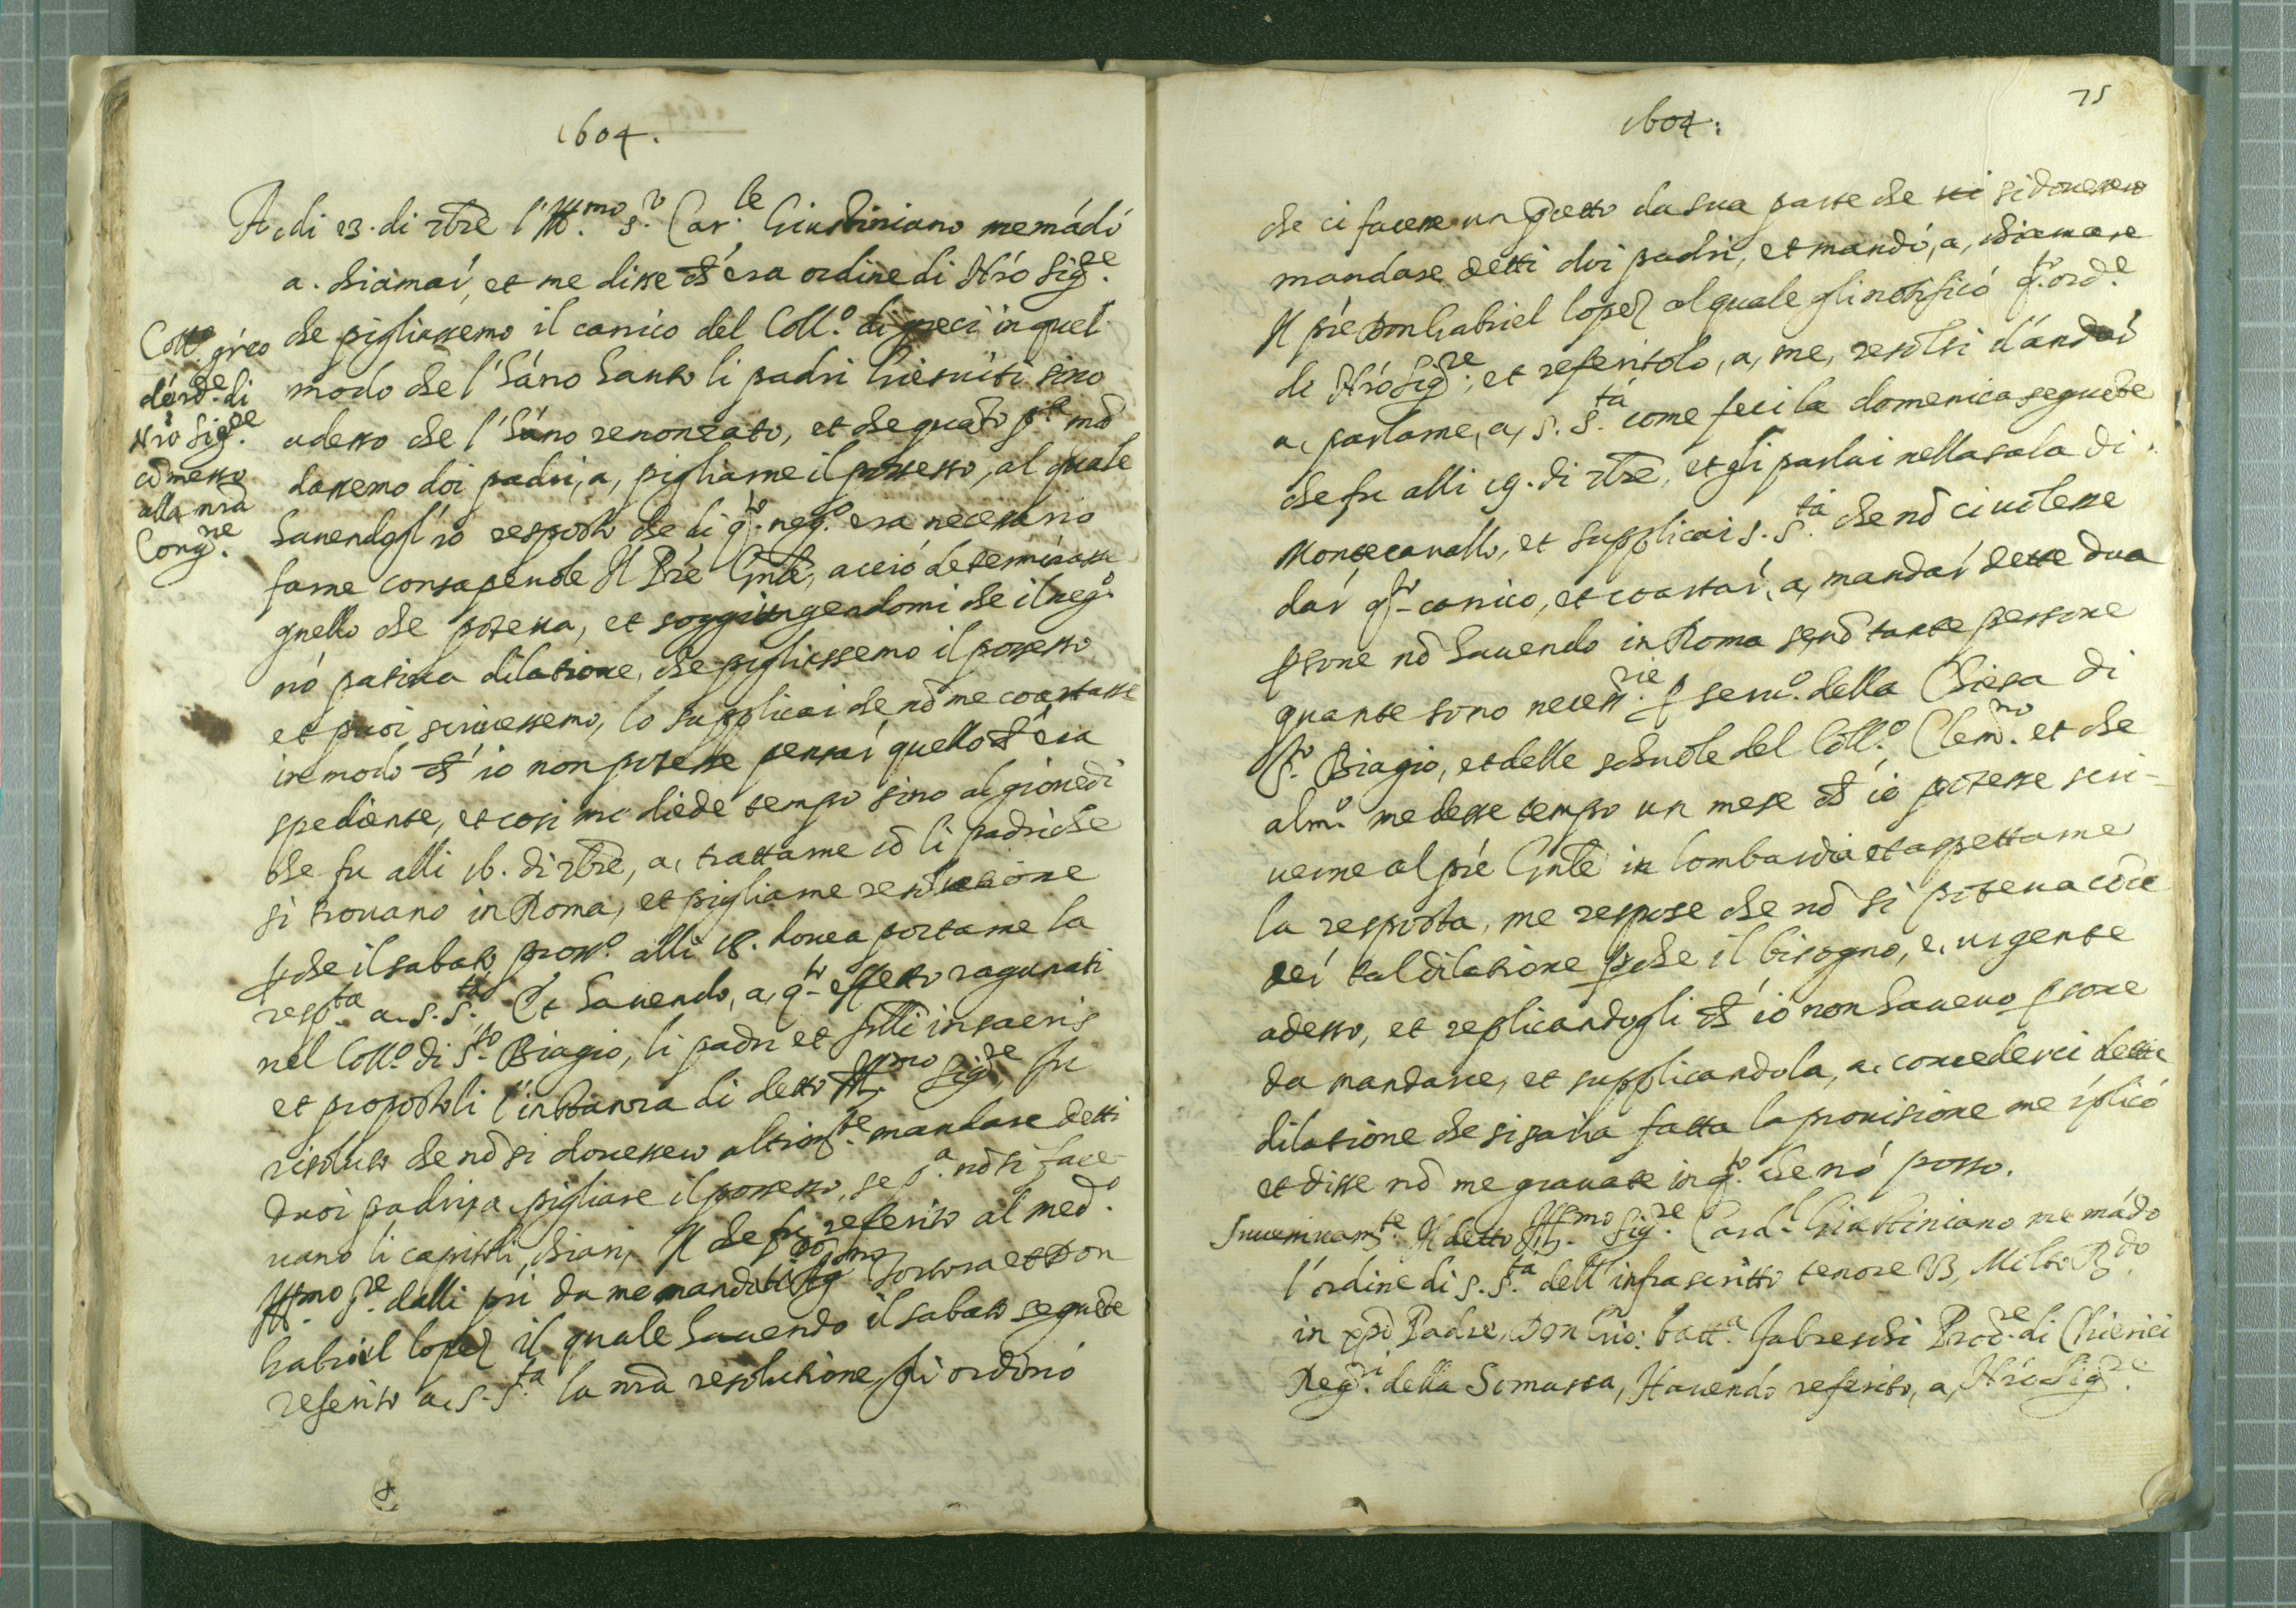 1604.
A, di 13. di 7bre l'Ill.mo S.r Car.le Giustiniano me mādó
a. chiamar, et me disse ch'era ordine di Nró Sig.re
che pigliassemo il carrico del Coll.o di greci in quel
modo che l'háno hauto li padri Giesuiti sino
adesso che l'háno renonzato, et che quāto p.a mā
dassemo doi padri, a, pigliarne il possesso, al quale
havendogl'io resposto che di q.to neg.o era necessario
farne consapevole Il Prē Gnlē, acció determinasse
quello che poteva, et soggiungendomi che il neg.o
nó pativa dilatione, che pigliassemo il possesso
et puoi scrivessemo, lo supplicai che nō me coartasse
in modo ch'io non potesse pensar quello ch'era
spediente, et cosi me diede tempo sino al giovedi
che fu alli 16. di 7bre, a, trattarne cō li padri che
si trovano in Roma, et pigliarne resolutione
pche il sabato pross.o alli 18. dovea portarne la
resp.ta a. S. S.tà Et havendo, a, q.to effetto ragunati
nel Coll.o di S.to Biagio, li padri et frlli in sacris
et propostoli l'instanza di detto Ill.mo Sig.re fu
risoluto che nō si dovessero altrim.te mandare detti
duoi padri, a, pigliare il possesso, se p.a nō si face-
vano li capitoli, chiari, Il che fu referito al med.o
Ill.mo S.re dalli pri da me mandati Dō Tortora et Don
Gabriel lopez il quale havendo il sabato seguēte
referito a, S. S.ta la nrā resolutione, gli ordinó
Coll.o gréco
d'ord.e di
Nró Sig.re
cōmesso
alla nrā
Cong.ne
75
1604:
che ci facesse un pcetto da sua parte che si dovessero
mandare detti doi padri, et mandó, a, chiamare
Il prē Don Gabriel lopez al quale gli notificó q.to ord.e
di Nró Sig.re, et referitolo, a, me, resolsi d'andar
a, parlarne, a, S. S.tá come feci la domenica seguēte
che fu alli 19. di 7bre, et gli parlai nella sala di
Montecavallo, et supplicai S. S.tá che nō ci volesse
dar q.to carrico, et coartar, a, mandar dette dua
psone nō havendo in Roma se nō tante persone
quante sono necess.rie p serv.o della Chiesa di
S.to Biagio, et delle schuole del Coll.o Clem.no et che
alm.o me desse tempo un mese ch'io potesse scri-
verne al prē Gnlē in lombardia et aspettarne
la resposta, me respose che nō si poteva cōce
der tal dilatione pche il bisogno, e, urgente
adesso, et replicandogli ch'io non havevo psone
da mandarve, et supplicandola, a, concederci detta
dilatione che si saria fatta la provisione me rplicó
et disse nō me gravate in q.to che nó posso.
Successivam.te Il detto Ill.mo Sig.re Card.l Giustiniano me mádó
l'ordine di S. S.tà dell'infrascritto tenore V3, Molto R.do
in xpō Padre, Don Gio: batt.a fabreschi Proc.re di Chierici
Reg.ri della Somasca, Havendo referito, a, Nró Sig.re